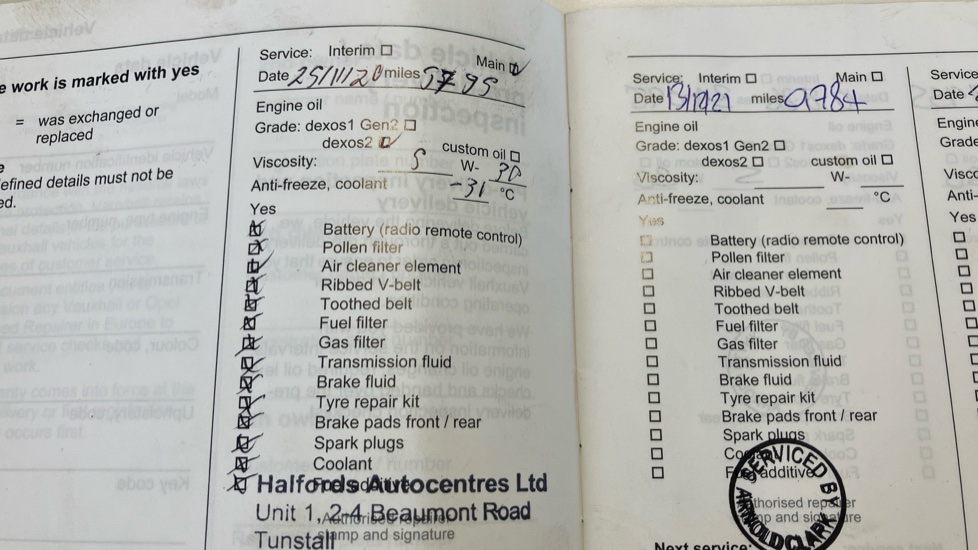 e work is marked with yes
= was exchanged or
replaced
efined details must not be
ed.
Service: Interim
Main
Date 25/11/20 miles
Engine oil
Grade: dexos1 Gen2
dexos2
custom oil
Viscosity: 5 W- 30
Anti-freeze, coolant -31 °C
Yes
Battery (radio remote control)
Pollen filter
Air cleaner element
Ribbed V-belt
Toothed belt
Fuel filter
Gas filter
Transmission fluid
Brake fluid
Tyre repair kit
Brake pads front / rear
Spark plugs
Coolant
Halfords Autocentres Ltd
Unit 1, 2-4 Beaumont Road
Authorised repairer
Tunstall
stamp and signature
Service: Interim Main
Date miles 9784
Engine oil
Grade: dexos1 Gen2
dexos2 custom oil
Viscosity: W-
Anti-freeze, coolant °C
Yes
Battery (radio remote control)
Pollen filter
Air cleaner element
Ribbed V-belt
Toothed belt
Fuel filter
Gas filter
Transmission fluid
Brake fluid
Tyre repair kit
Brake pads front / rear
Spark plugs
SERVICED BY
ARNOLD CLARK
Next service:
Service
Date
Engine
Grade
Visco
Anti-
Yes